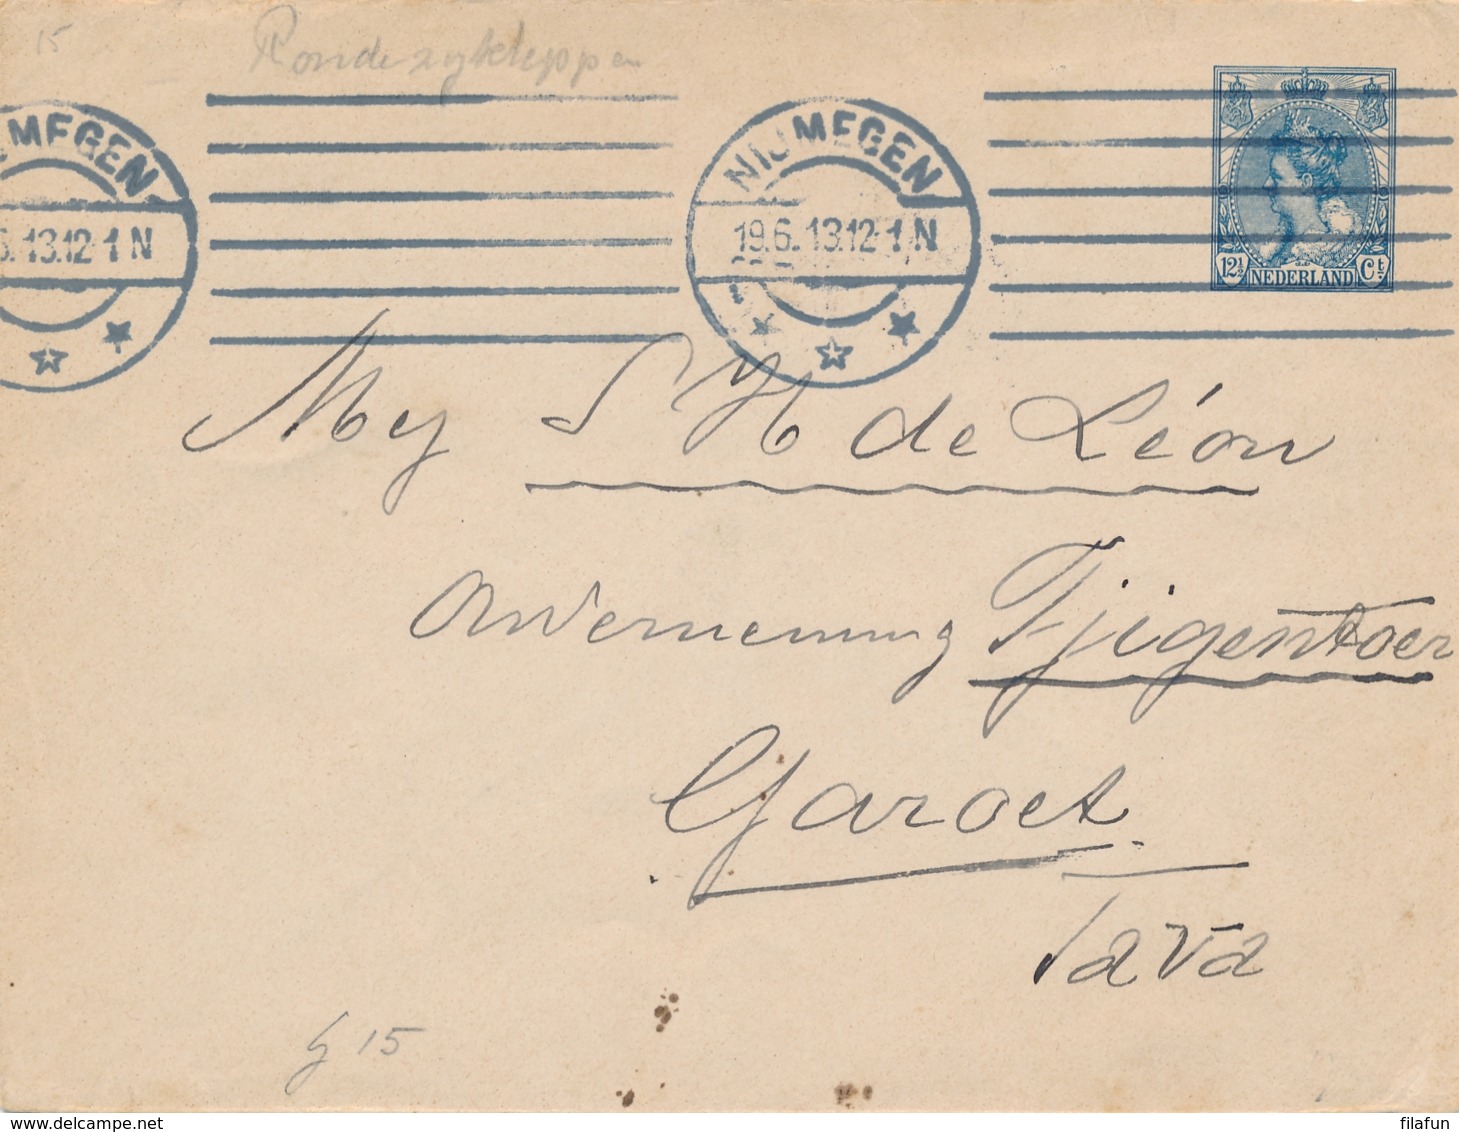 15
Ronde zijkleppen
NIJMEGEN
19.6.13.12-1 N
MEGEN
6.13.12-1 N
12½ NEDERLAND Ct
Mej S H de Léon
Onderneming Tjigentoer
Garoet
Java
G 15
delcampe.net
filafun